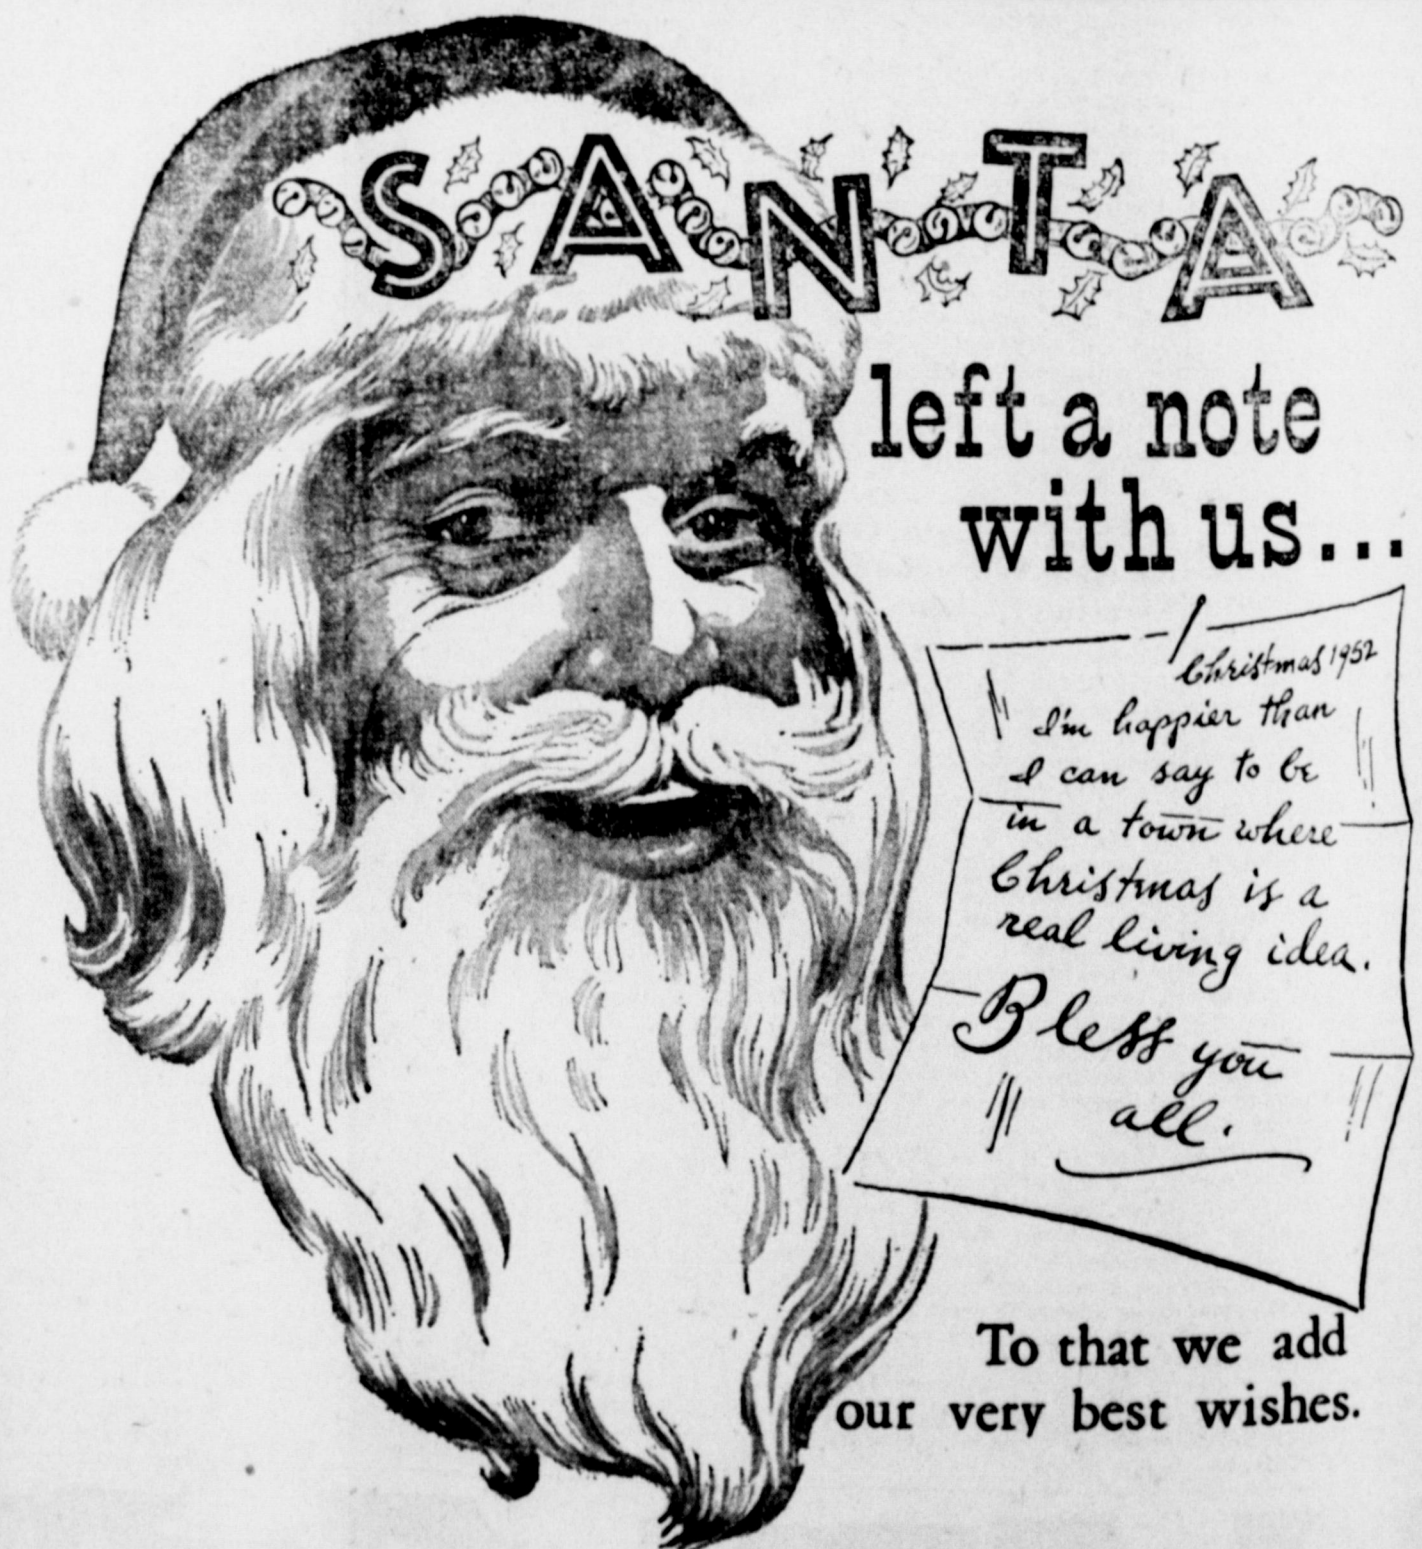 SANTA
left a note
with us...
Christmas 1952
I'm happier than
I can say to be
in a town where
Christmas is a
real living idea.
Bless you
all.
To that we add
our very best wishes.